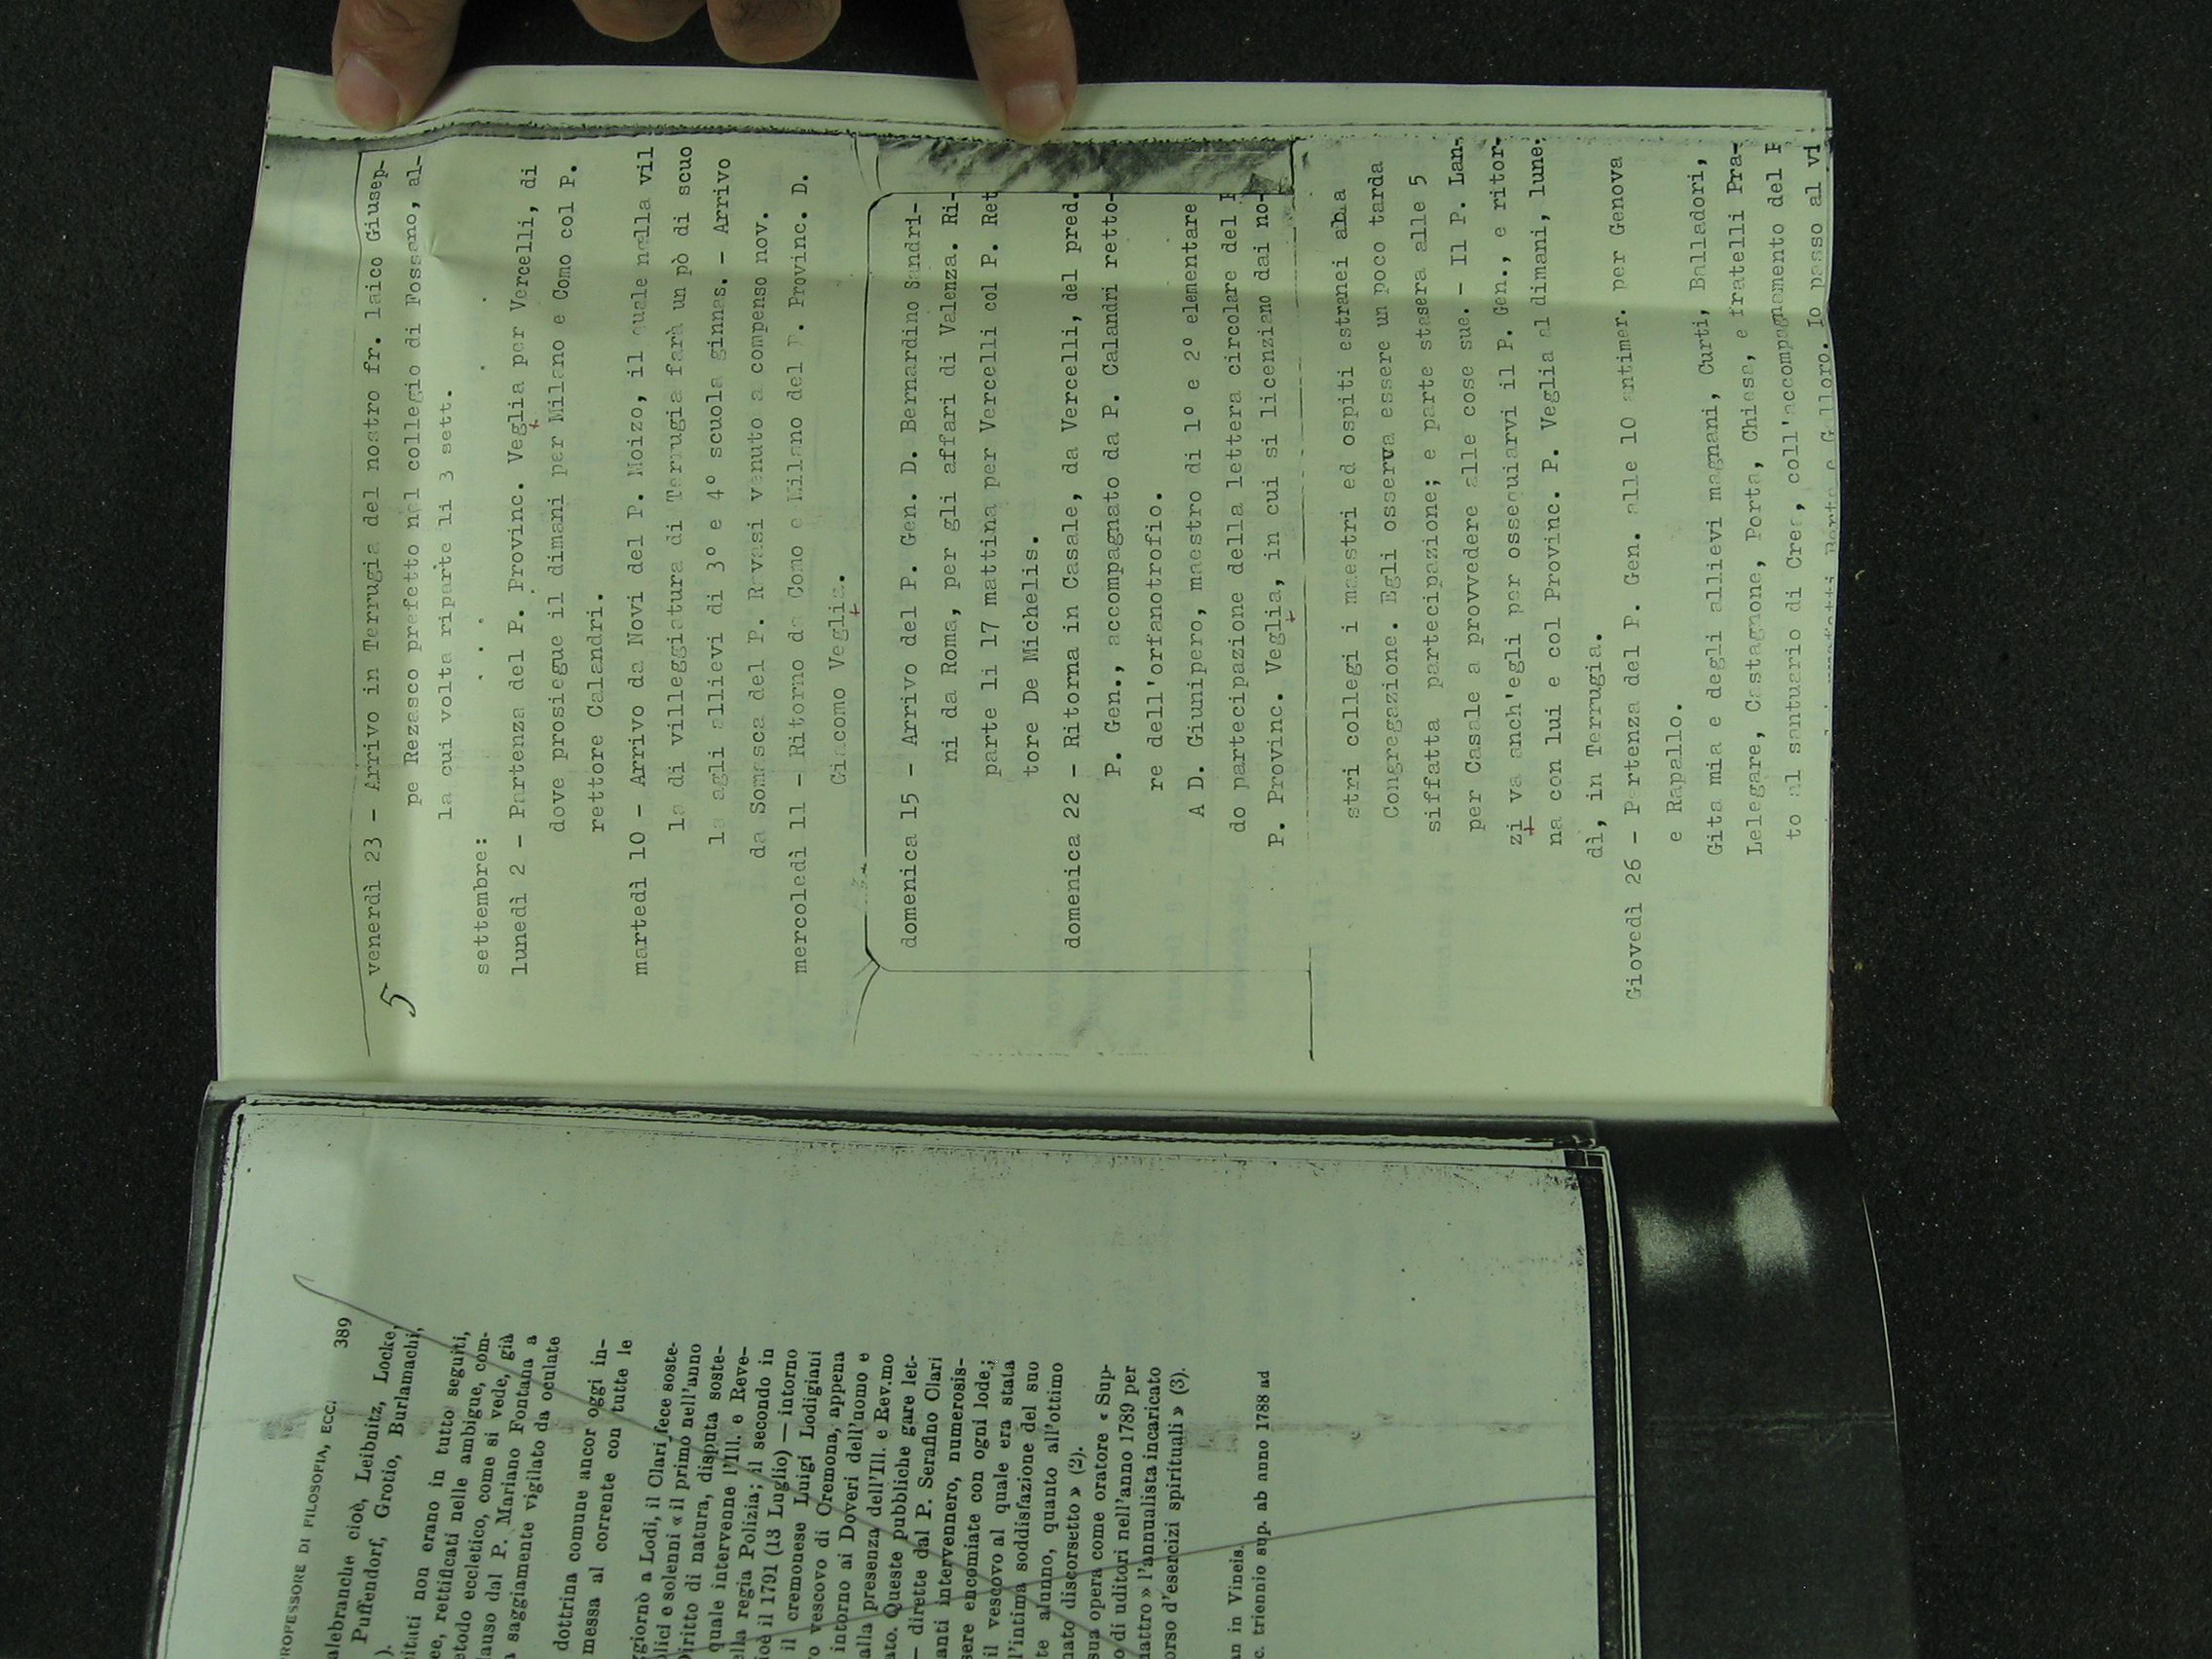 5
venerdì 23 - Arrivo in Terrugia del nostro fr. laico Giusep-
pe Rezasco prefetto nel collegio di Fossano, al-
la cui volta riparte li 3 sett.
settembre: . . . . .
lunedì 2 - Partenza del P. Provinc. Veglia per Vercelli, di
dove prosiegue il dimani per Milano e Como col P.
rettore Calandri.
martedì 10 - Arrivo da Novi del P. Moizo, il quale nella vil
la di villeggiatura di Terrugia farà un pò di scuo
la agli allievi di 3º e 4º scuola ginnas. - Arrivo
da Somasca del P. Ravasi venuto a compenso nov.
mercoledì 11 - Ritorno da Como e Milano del P. Provinc. D.
Giacomo Veglia.
domenica 15 - Arrivo del P. Gen. D. Bernardino Sandri-
ni da Roma, per gli affari di Valenza. Ri-
parte li 17 mattina per Vercelli col P. Ret
tore De Michelis.
domenica 22 - Ritorna in Casale, da Vercelli, del pred.
P. Gen., accompagnato da P. Calandri retto-
re dell'orfanotrofio.
A D. Giunipero, maestro di 1º e 2º elementare
do partecipazione della lettera circolare del P
P. Provinc. Veglia, in cui si licenziano dai no-
stri collegi i maestri ed ospiti estranei alla
Congregazione. Egli osserva essere un poco tarda
siffatta partecipazione; e parte stasera alle 5
per Casale a provvedere alle cose sue. - Il P. Lan-
zi va anch'egli per ossequiarvi il P. Gen., e ritor-
na con lui e col Provinc. P. Veglia al dimani, lune-
dì, in Terrugia.
Giovedì 26 - Partenza del P. Gen. alle 10 antimer. per Genova
e Rapallo.
Gita mia e degli allievi magnani, Curti, Balladori,
Lelegare, Castagnone, Porta, Chiesa, e fratelli Pra-
to al santuario di Crea, coll'accompagnamento del P
Porta e Galloro. Io passo al vi
PROFESSORE DI FILOSOFIA, ECC. 389
alebranche cioè, Leibnitz, Locke,
Puffendorf, Grotio, Burlamachi,
ituti non erano in tutto seguiti,
ee, rettificati nelle ambigue, com-
etodo eccletico, come si vede, già
lauso dal P. Mariano Fontana a
saggiamente vigilato da oculate
dottrina comune ancor oggi in-
messa al corrente con tutte le
ggiornò a Lodi, il Clari fece soste-
blici e solenni « il primo nell'anno
diritto di natura, disputa soste-
quale intervenne l'Ill. e Reve-
ella regia Polizia; il secondo in
ioè il 1791 (13 Luglio) — intorno
il cremonese Luigi Lodigiani
o vescovo di Cremona, appena
intorno ai Doveri dell'uomo e
alla presenza dell'Ill. e Rev.mo
ato. Queste pubbliche gare let-
— dirette dal P. Serafino Clari
anti intervennero, numerosis-
sere encomiate con ogni lode.;
il vescovo al quale era stata
l'intima soddisfazione del suo
te alunno, quanto all'ottimo
nato discorsetto » (2).
sua opera come oratore « Sup-
o di uditori nell'anno 1789 per
uattro » l'annualista incaricato
orso d'esercizi spirituali » (3).
an in Vineis.
c. triennio sup. ab anno 1788 ad